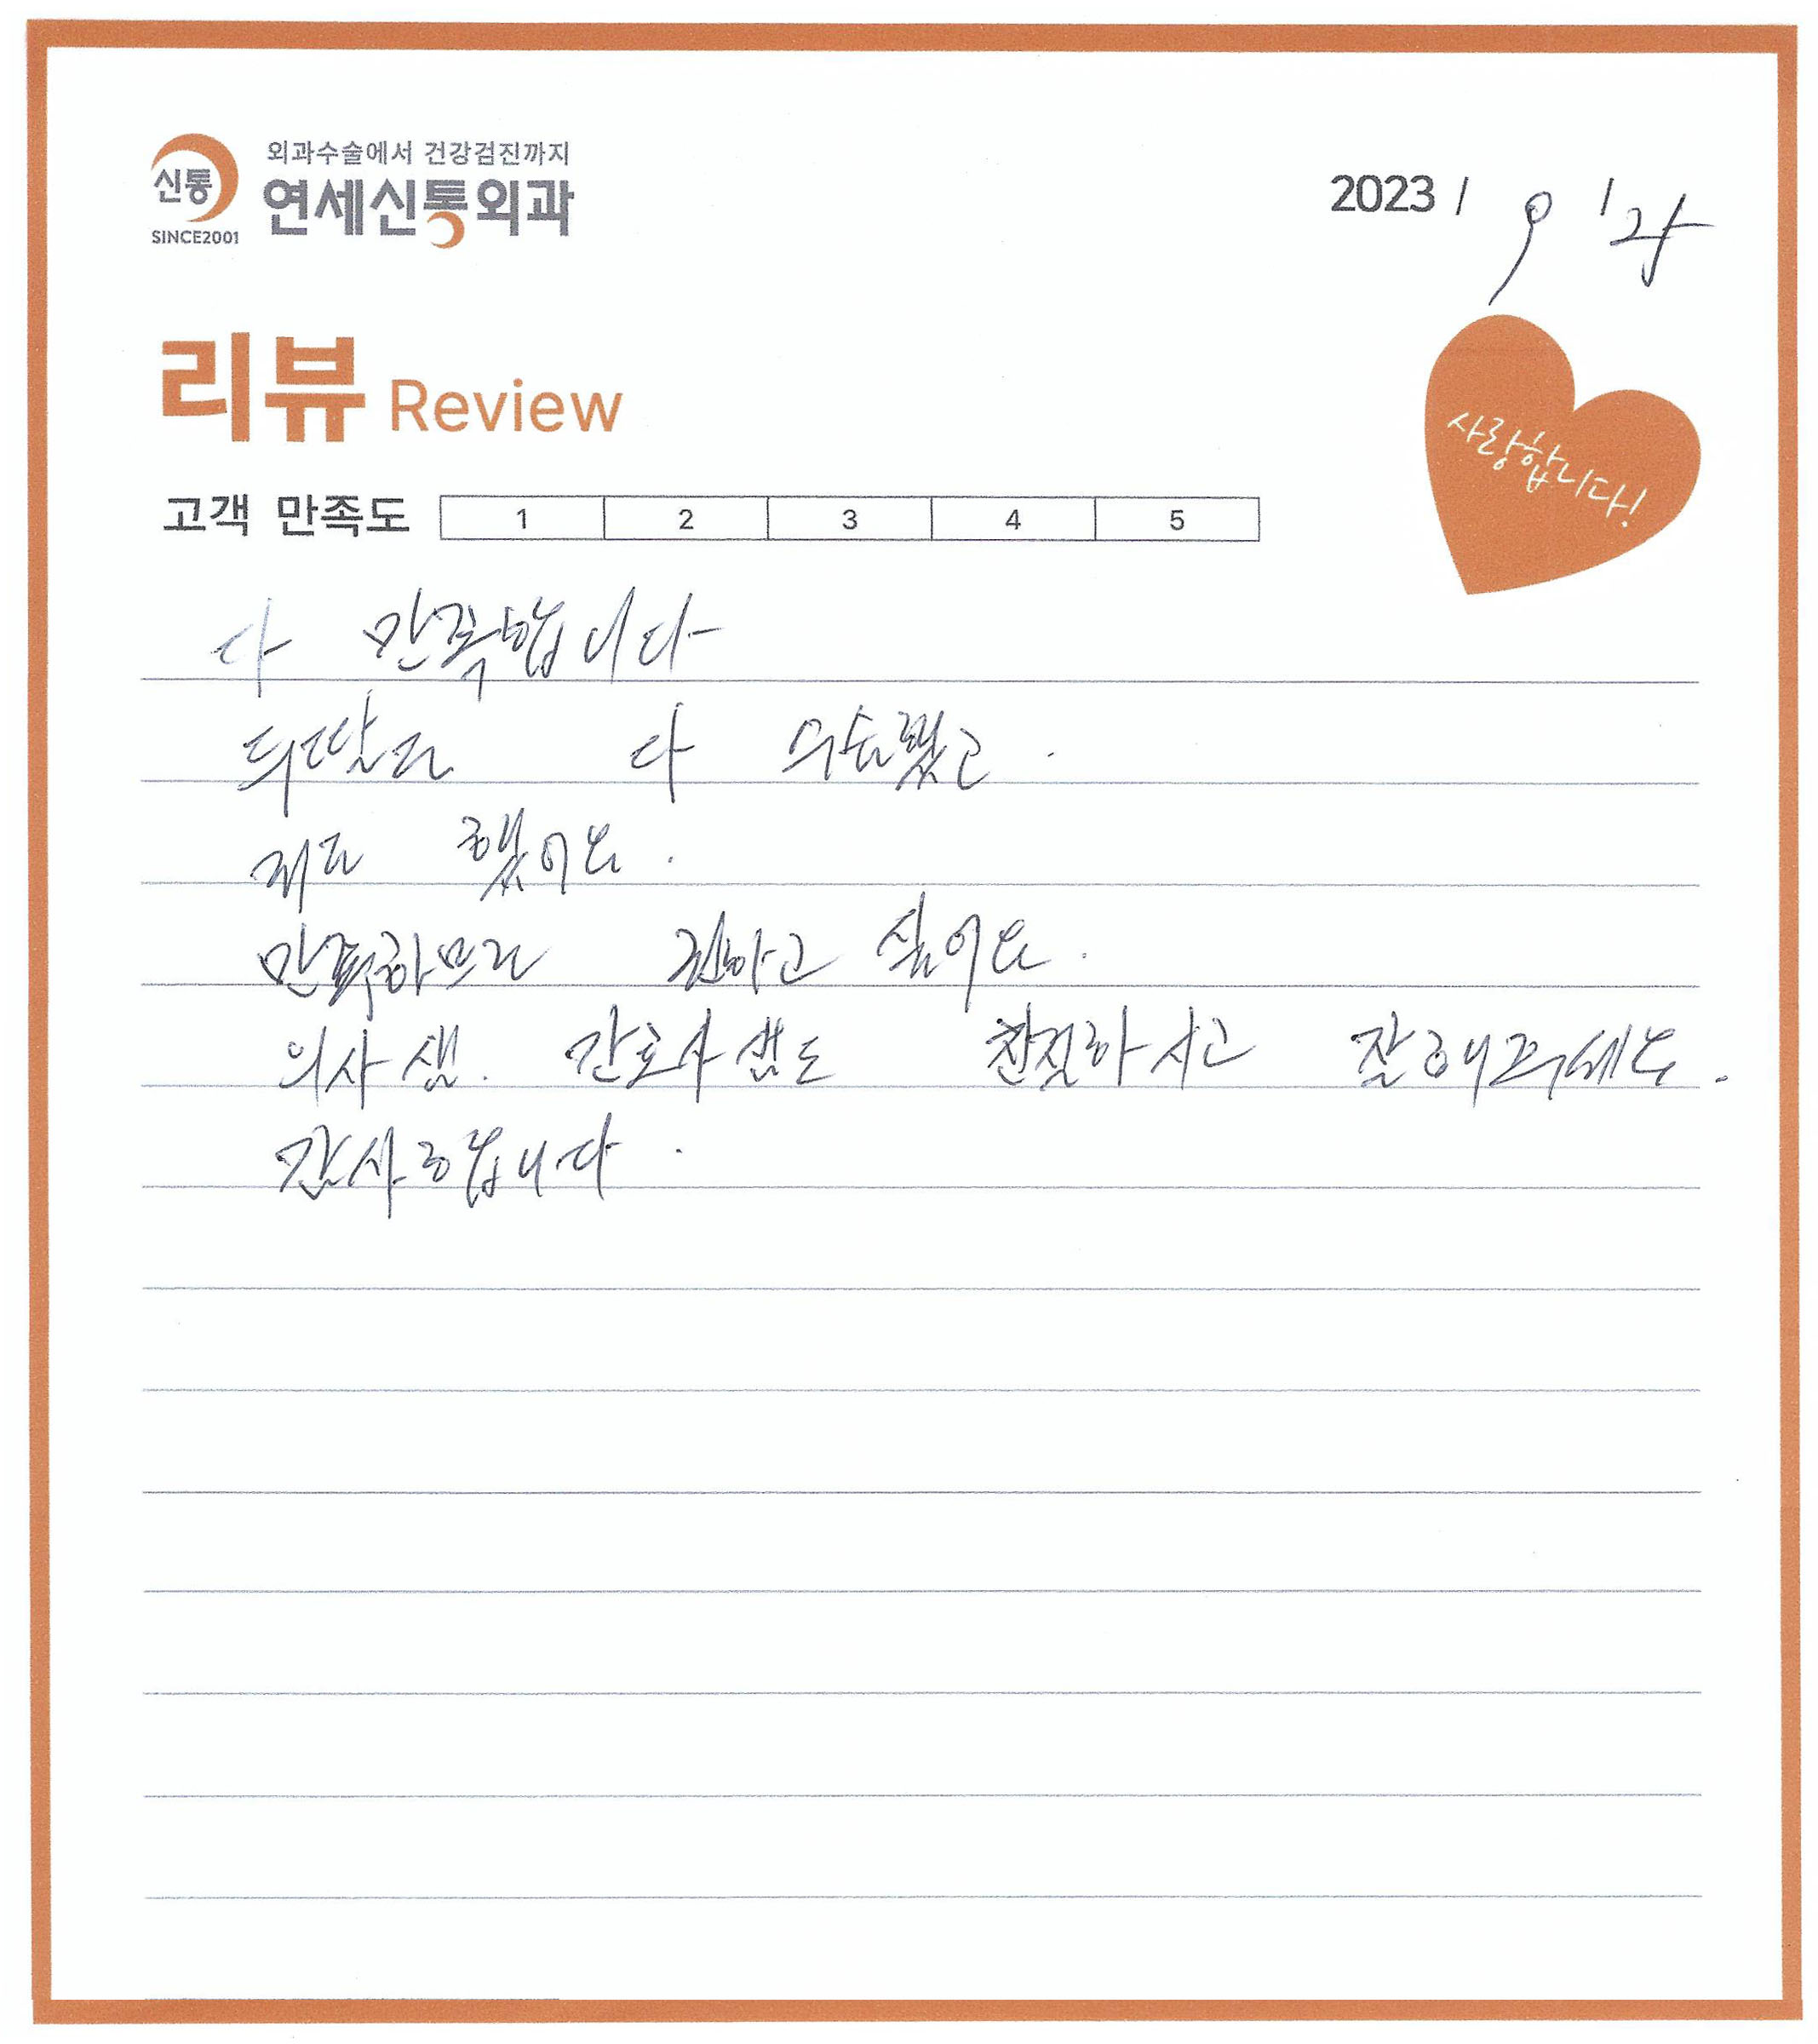 외과수술에서 건강검진까지
신통 연세신통외과
SINCE2001
2023 / 9 / 24
리뷰 Review
사랑합니다!
고객 만족도 1 2 3 4 5
다 만족합니다
다 수술했고.
했어요.
만족하므로 권하고 싶어요.
의사샘. 간호사샘도 친절하시고 잘해주세요.
감사합니다.